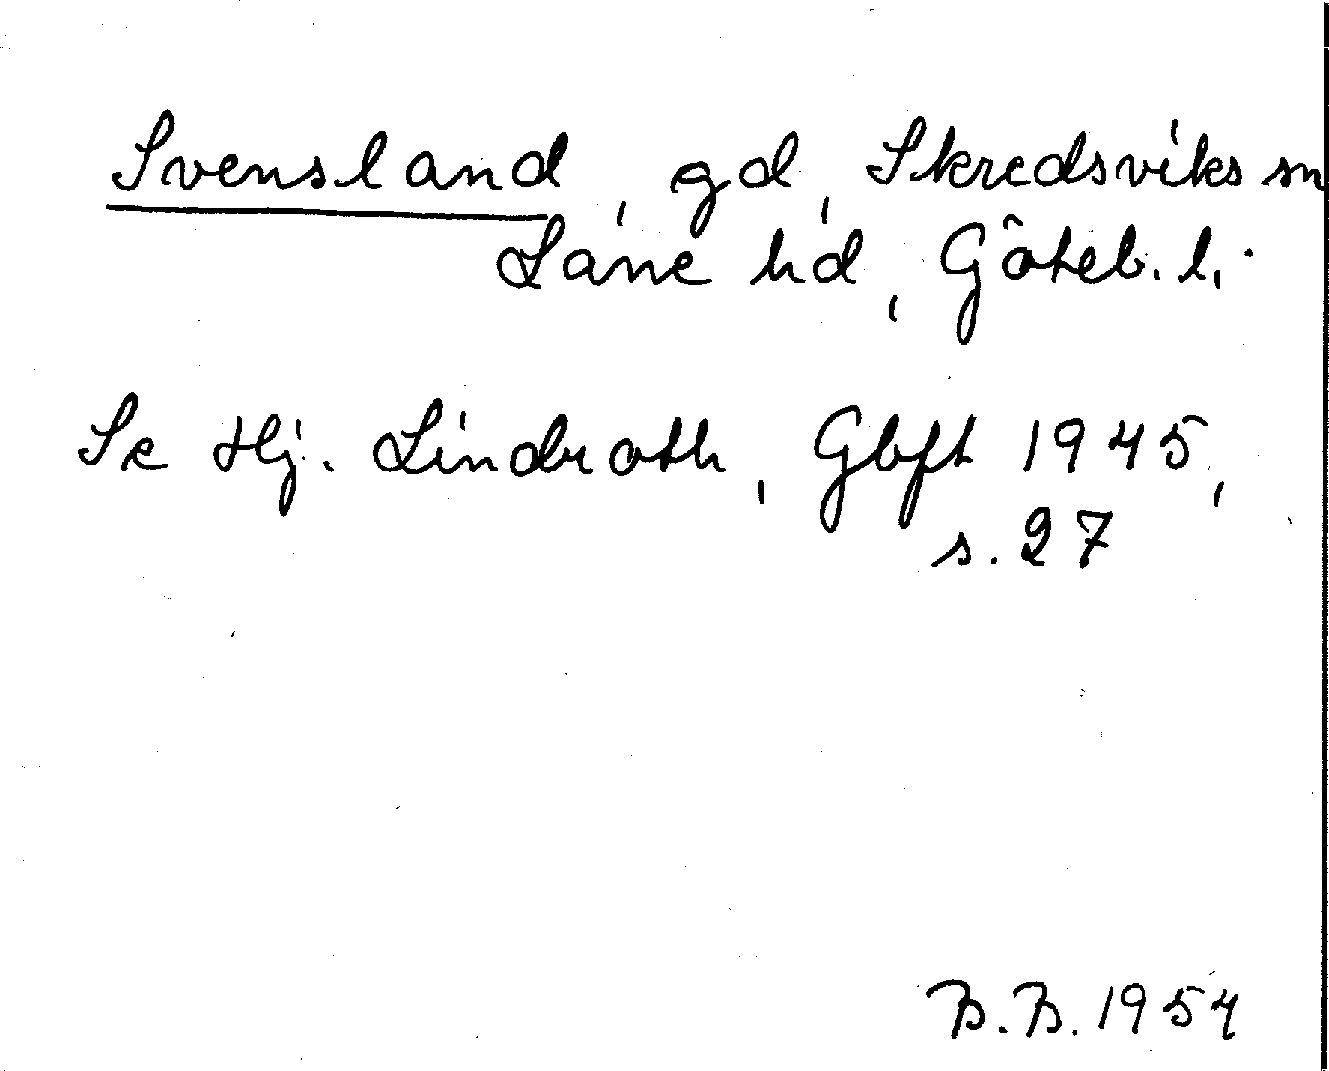 Svensland, gd, Skredsviks sn
Lane hd, Göteb. l.
Se Hj. Lindroth, Gbft 1945,
s. 27
B.B. 1954